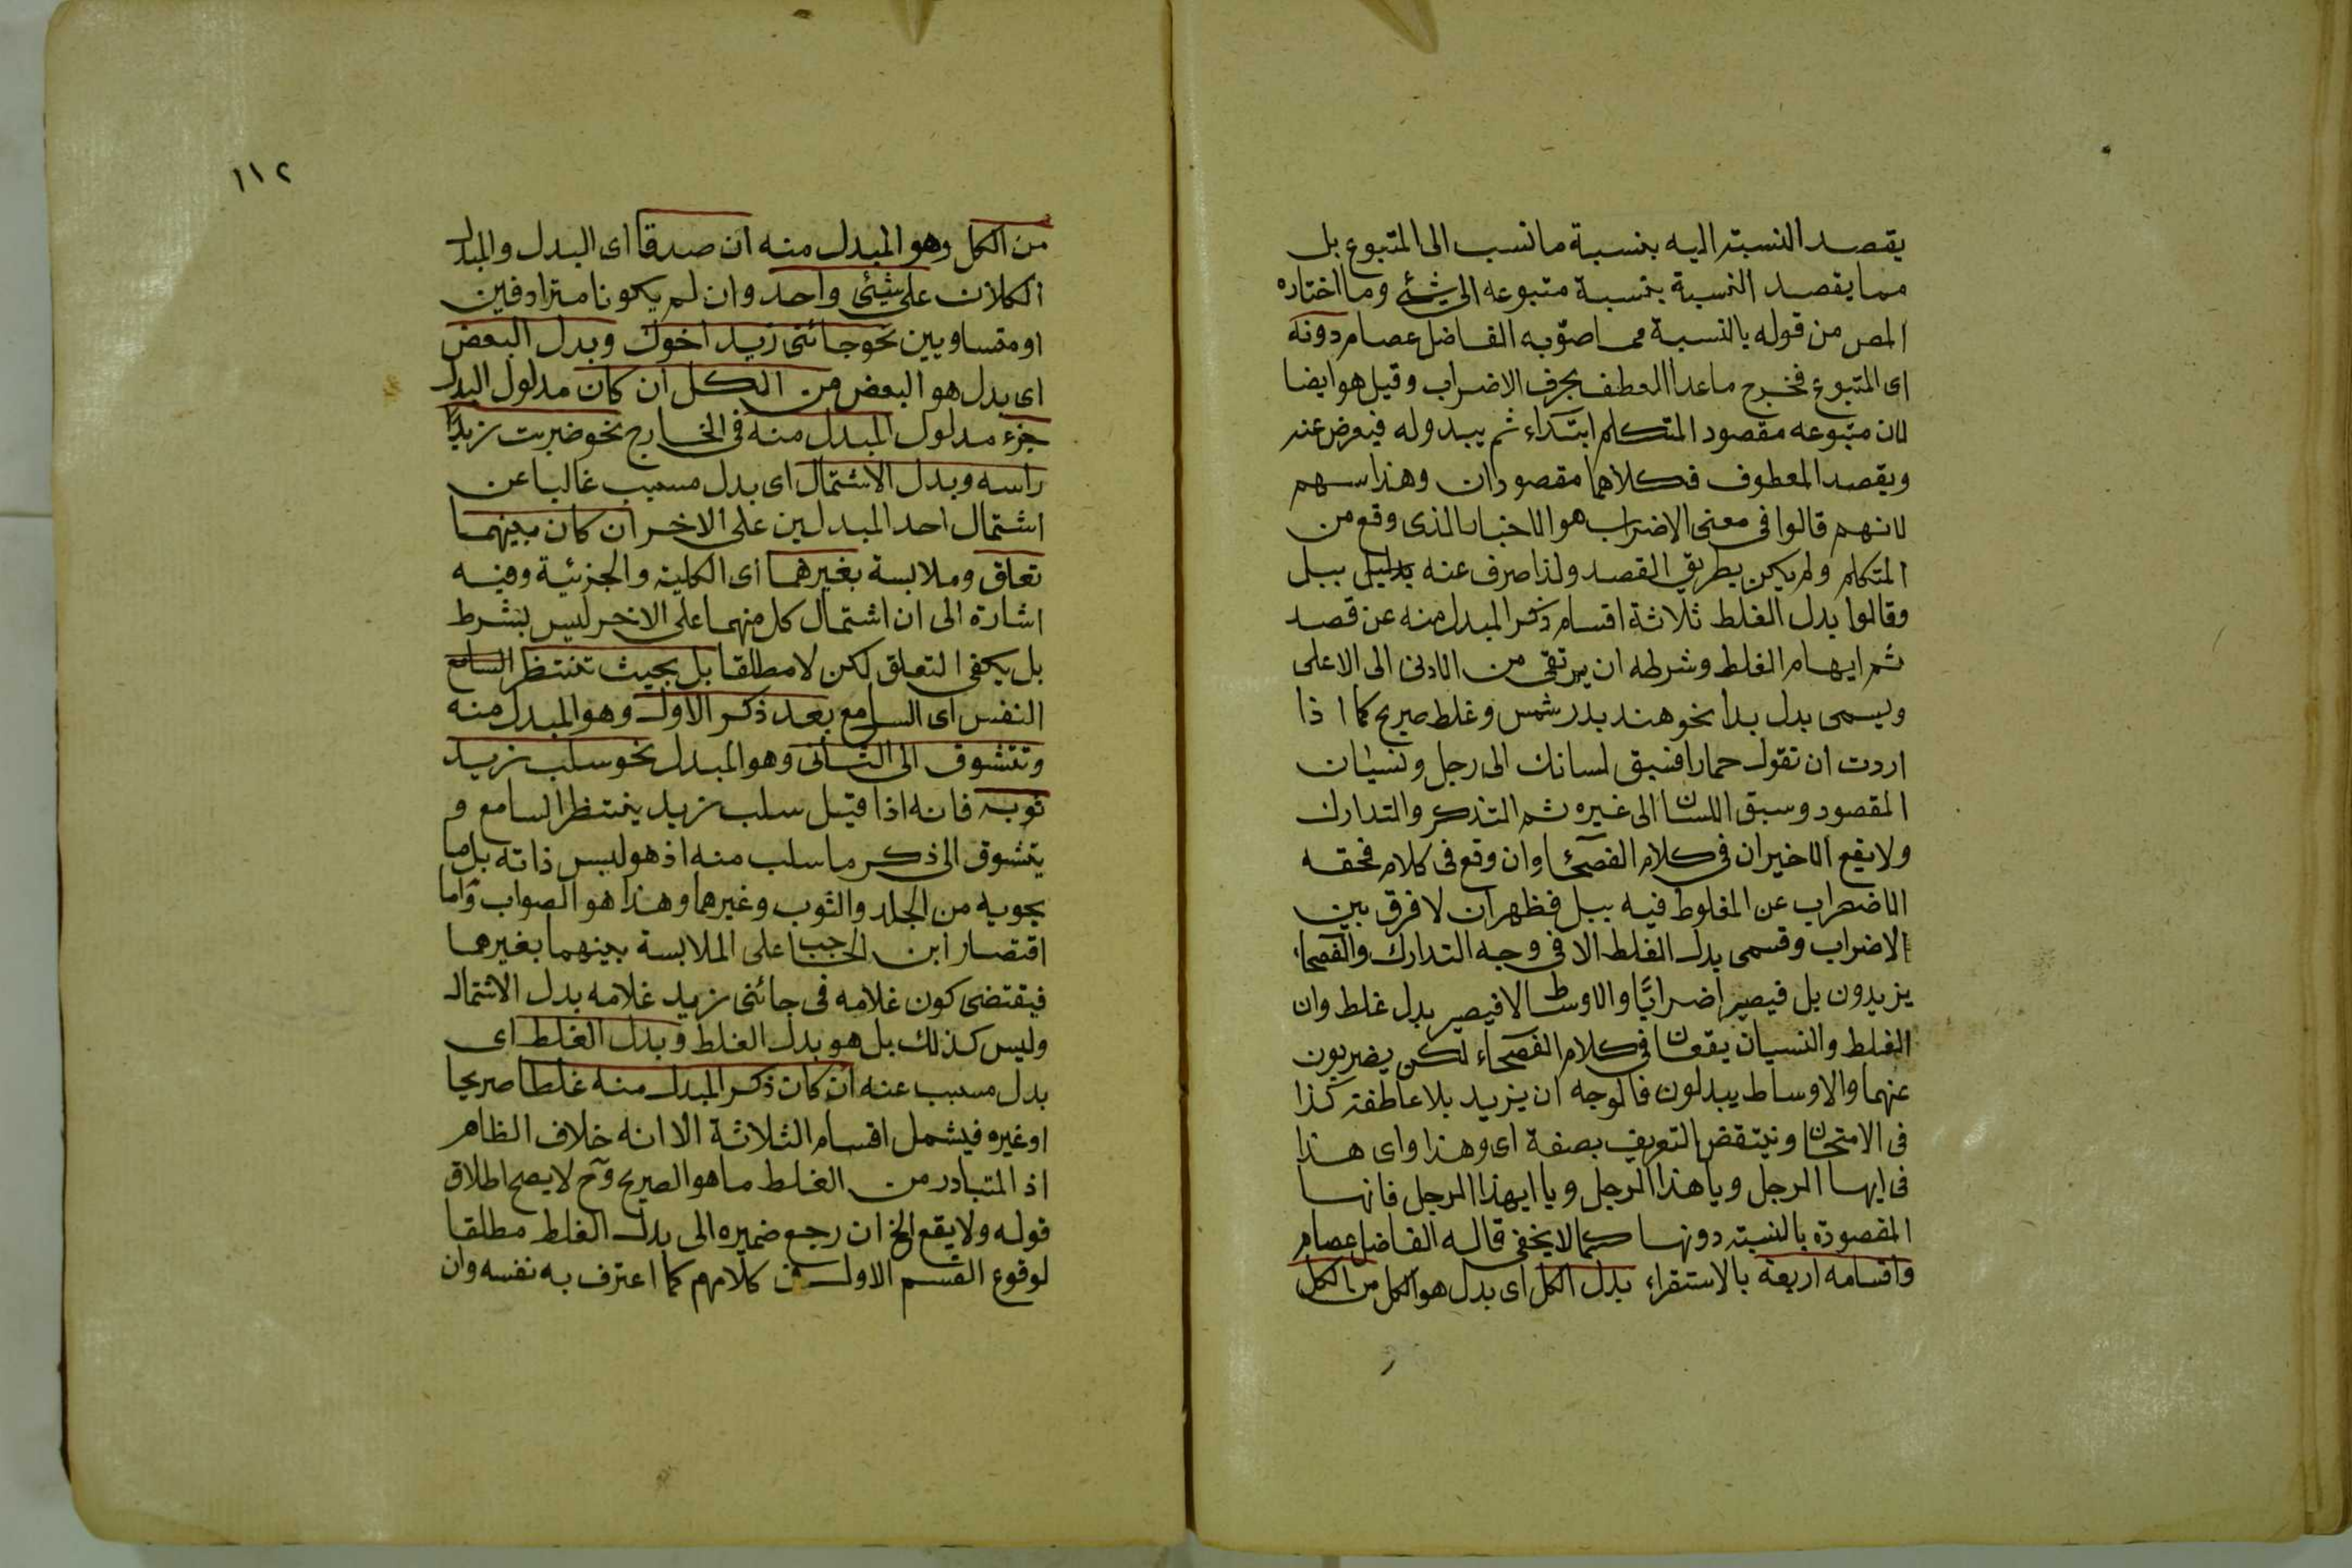 يقصد النسبة اليه بنسبة ما نسب الى المتبوع بل
مما يقصد النسبة بنسبة متبوعه الى شئ وما اختاره
المص من قوله بالنسبة مما صوّبه الفاضل عصام دونه
اى المتبوع فخرج ما عدا المعطف بحرف الاضراب وقيل هو ايضا
لان متبوعه مقصود المتكلم ابتداء ثم يبدو له فيعرض عنه
ويقصد المعطوف فكلاهما مقصودان وهذا سهم
لانهم قالوا فى معنى الاضراب هو الاخبار الذى وقع من
المتكلم ولم يكن بطريق القصد ولذا صرف عنه ببل
وقالوا بدل الغلط ثلاثة اقسام ذكر المبدل منه عن قصد
ثم ايهام الغلط وشرطه ان يرتقى من الادنى الى الاعلى
ويسمى بدل بدا نحو هند بدر شمس وغلط صريح كما اذا
اردت ان تقول حمارا فسبق لسانك الى رجل ونسيان
المقصود وسبق اللسان الى غيره ثم التذكر والتدارك
ولا يقع الاخيران فى كلام الفصحاء وان وقع فى كلام فحقه
الاضراب عن المغلوط فيه ببل فظهر ان لا فرق بين
الاضراب وقسمى بدل الغلط الا فى وجه التدارك والفصحاء
يزيدون بل فيصير اضرابًا والاوساط لا فيصير بدل غلط وان
الغلط والنسيان يقعان فى كلام الفصحاء لكن يضربون
عنهما والاوساط يبدلون فالوجه ان يزيد بلا عاطفة كذا
فى الامتحان وينتقض التعريف بصفة اى وهذا واى هذا
فى ايها الرجل ويا هذا الرجل ويا ايهذا الرجل فانها
المقصودة بالنسبة دونها كما لا يخفى قاله الفاضل عصام
واقسامه اربعة بالاستقراء بدل الكل اى بدل هو الكل من الكل
١١٢
من الكل وهو المبدل منه ان صدقا اى البدل والمبدل
الكلان على شئى واحد وان لم يكونا مترادفين
او متساويين نحو جائنى زيد اخوك وبدل البعض
اى بدل هو البعض من الكل ان كان مدلول البدل
جزء مدلول المبدل منه فى الخارج نحو ضربت زيدًا
راسه وبدل الاشتمال اى بدل مسبب غالبا عن
اشتمال احد المبدلين على الاخر ان كان بينهما
تعلق وملابسة بغيرهما اى الكلية والجزئية وفيه
اشارة الى ان اشتمال كل منهما على الاخر ليس بشرط
بل يكفى التعلق لكن لا مطلقا بل بحيث تنتظر السامع
النفس اى السامع بعد ذكر الاول وهو المبدل منه
وتتشوق الى الثانى وهو المبدل نحو سلب زيد
ثوبه فانه اذا قيل سلب زيد ينتظر السامع و
يتشوق الى ذكر ما سلب منه اذ هو ليس ذاته بل ما
يحويه من الجلد والثوب وغيرهما وهذا هو الصواب واما
اقتصار ابن الحاجب على الملابسة بينهما بغيرهما
فيقتضى كون غلامه فى جائنى زيد غلامه بدل الاشتمال
وليس كذلك بل هو بدل الغلط وبدل الغلط اى
بدل مسبب عنه ان كان ذكر المبدل منه غلطا صريحا
او غيره فيشمل اقسام الثلاثة الا انه خلاف الظاهر
اذ المتبادر من الغلط ما هو الصريح وح لا يصح اطلاق
قوله ولا يقع الخ ان رجع ضميره الى بدل الغلط مطلقا
لوقوع القسم الاول من كلامهم كما اعترف به نفسه وان